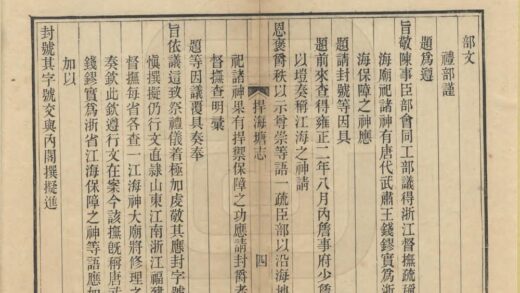 部文
禮部謹
題爲遵
旨敬陳事臣部會同工部議得浙江督撫疏稱
海廟祀諸神有唐代武肅王錢鏐實爲浙
海保障之神應
題請封號等因具
題前來查得雍正二年八月內詹事府少詹
以塏奏稱江海之神請
恩褒爵秩以示尊崇等語一疏臣部以沿海地
捍海塘志 四
祀諸神果有捍禦保障之功應請封爵者
督撫查明彙
題等因議覆具奏奉
旨依議這致祭禮儀着極加虔敬其應封字號
愼撰擬仍行文直隸山東江南浙江福建
督撫每省各查一江海神大廟將修理之
奏欽此欽遵行文在案今該撫旣稱唐武
錢鏐實爲浙省江海保障之神等語應如
加以
封號其字號交與內閣撰擬進